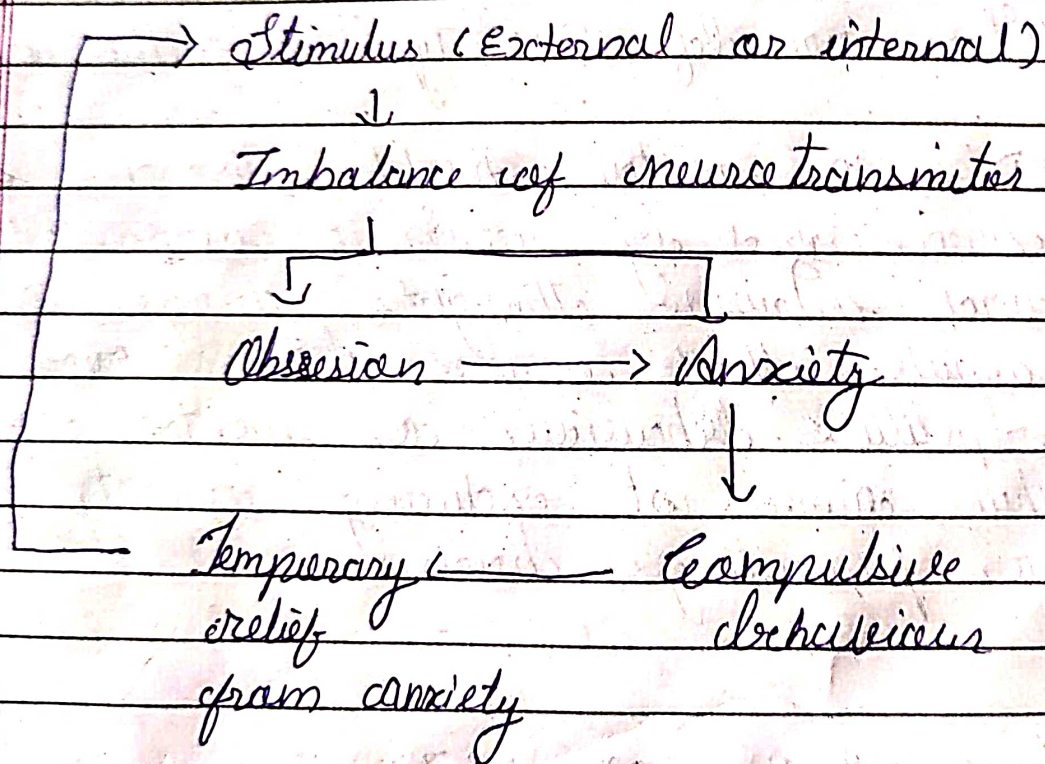 Stimulus (External or internal)
Imbalance of neurotransmitor
Obssesion → Anxiety
Tempurary ← Compulsive
relief behaviour
from anxiety